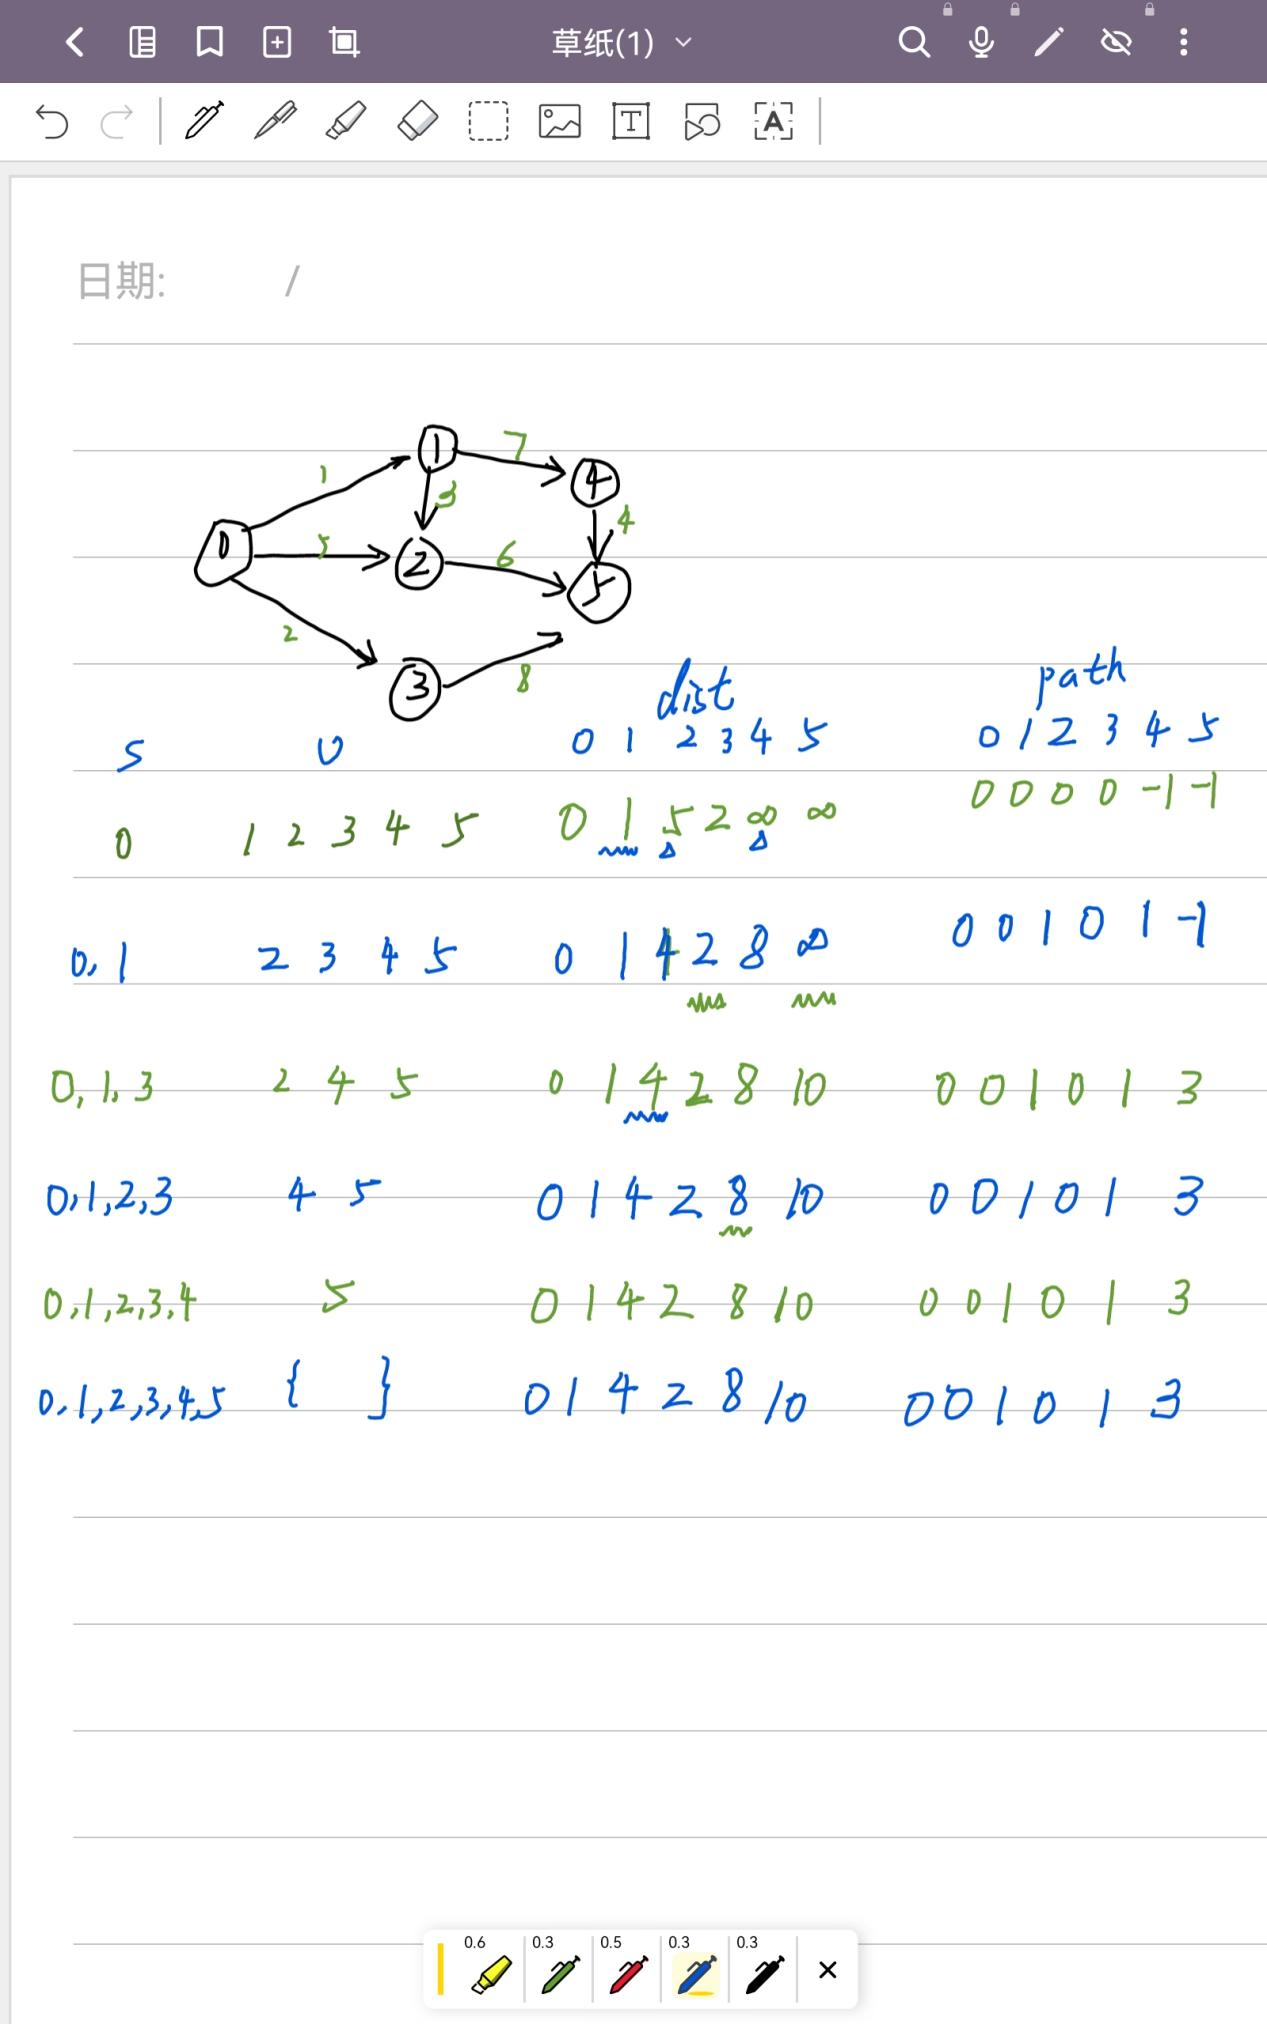 草纸(1)
日期: /
1
7
3
4
0
5
2
6
5
4
1
2
3
8
dist
path
S U 0 1 2 3 4 5 0 1 2 3 4 5
0 1 2 3 4 5 0 1 5 2 ∞ ∞ 0 0 0 0 -1 -1
0,1 2 3 4 5 0 1 4 2 8 ∞ 0 0 1 0 1 -1
0,1,3 2 4 5 0 1 4 2 8 10 0 0 1 0 1 3
0,1,2,3 4 5 0 1 4 2 8 10 0 0 1 0 1 3
0,1,2,3,4 5 0 1 4 2 8 10 0 0 1 0 1 3
0,1,2,3,4,5 { } 0 1 4 2 8 10 0 0 1 0 1 3
0.6 0.3 0.5 0.3 0.3